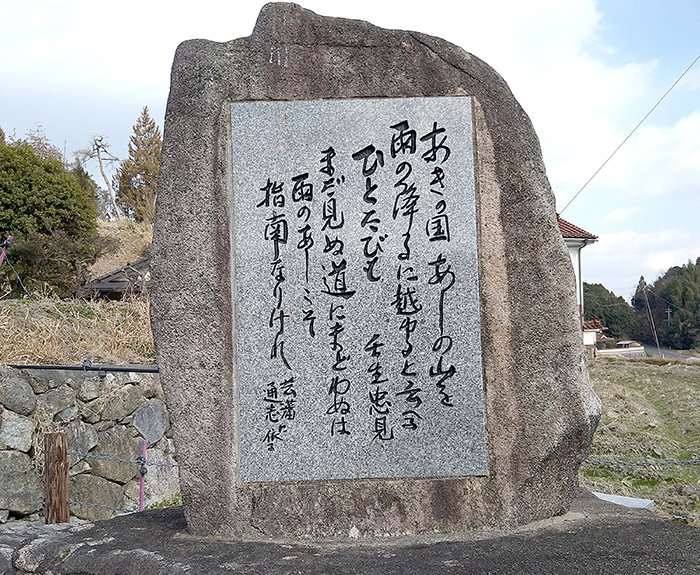 あきの国 あしの山を
雨の降るに越ゆると云
ひとたびも 壬生忠見
まだ見ぬ道にまどわぬは
雨のあしこそ
指南なりけれ
芸藩
通志